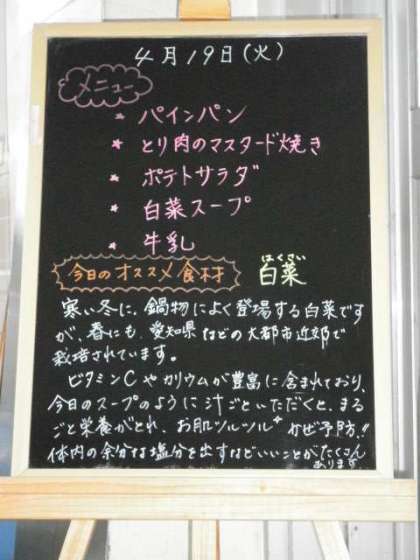 4月19日(火)
メニュー
* パインパン
* とり肉のマスタード焼き
* ポテトサラダ
* 白菜スープ
* 牛乳
今日のオススメ食材
はくさい
白菜
寒い冬に、鍋物によく登場する白菜です
が、春にも、愛知県などの大都市近郊で
栽培されています。
ビタミンCやカリウムが豊富に含まれており、
今日のスープのように汁ごといただくと、まる
ごと栄養がとれ、お肌ツルツル+かぜ予防!!
体内の余分な塩分を出すなどいいことがたくさん
あります